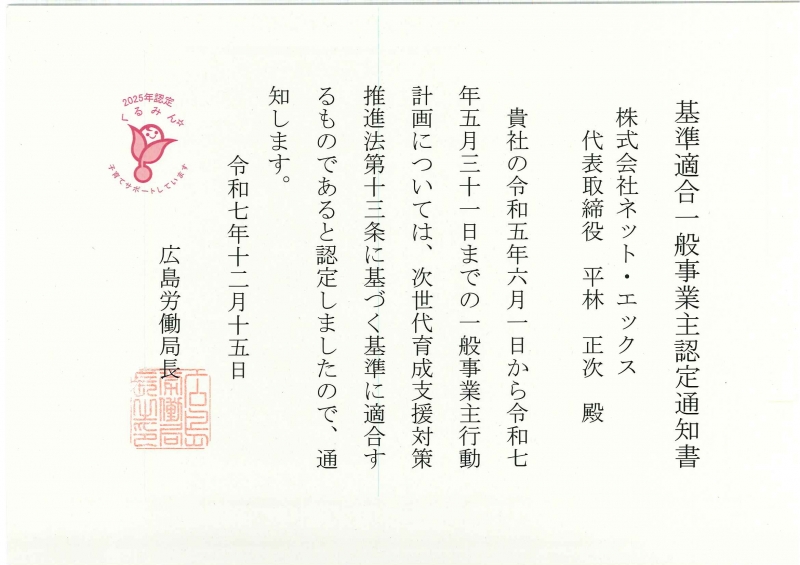 基準適合一般事業主認定通知書
株式会社ネット・エックス
代表取締役　平林　正次　殿
貴社の令和五年六月一日から令和七
年五月三十一日までの一般事業主行動
計画については、次世代育成支援対策
推進法第十三条に基づく基準に適合す
るものであると認定しましたので、通
知します。
令和七年十二月十五日
広島労働局長
広島労働局長之印
2025年認定
くるみん
子育てサポートしています